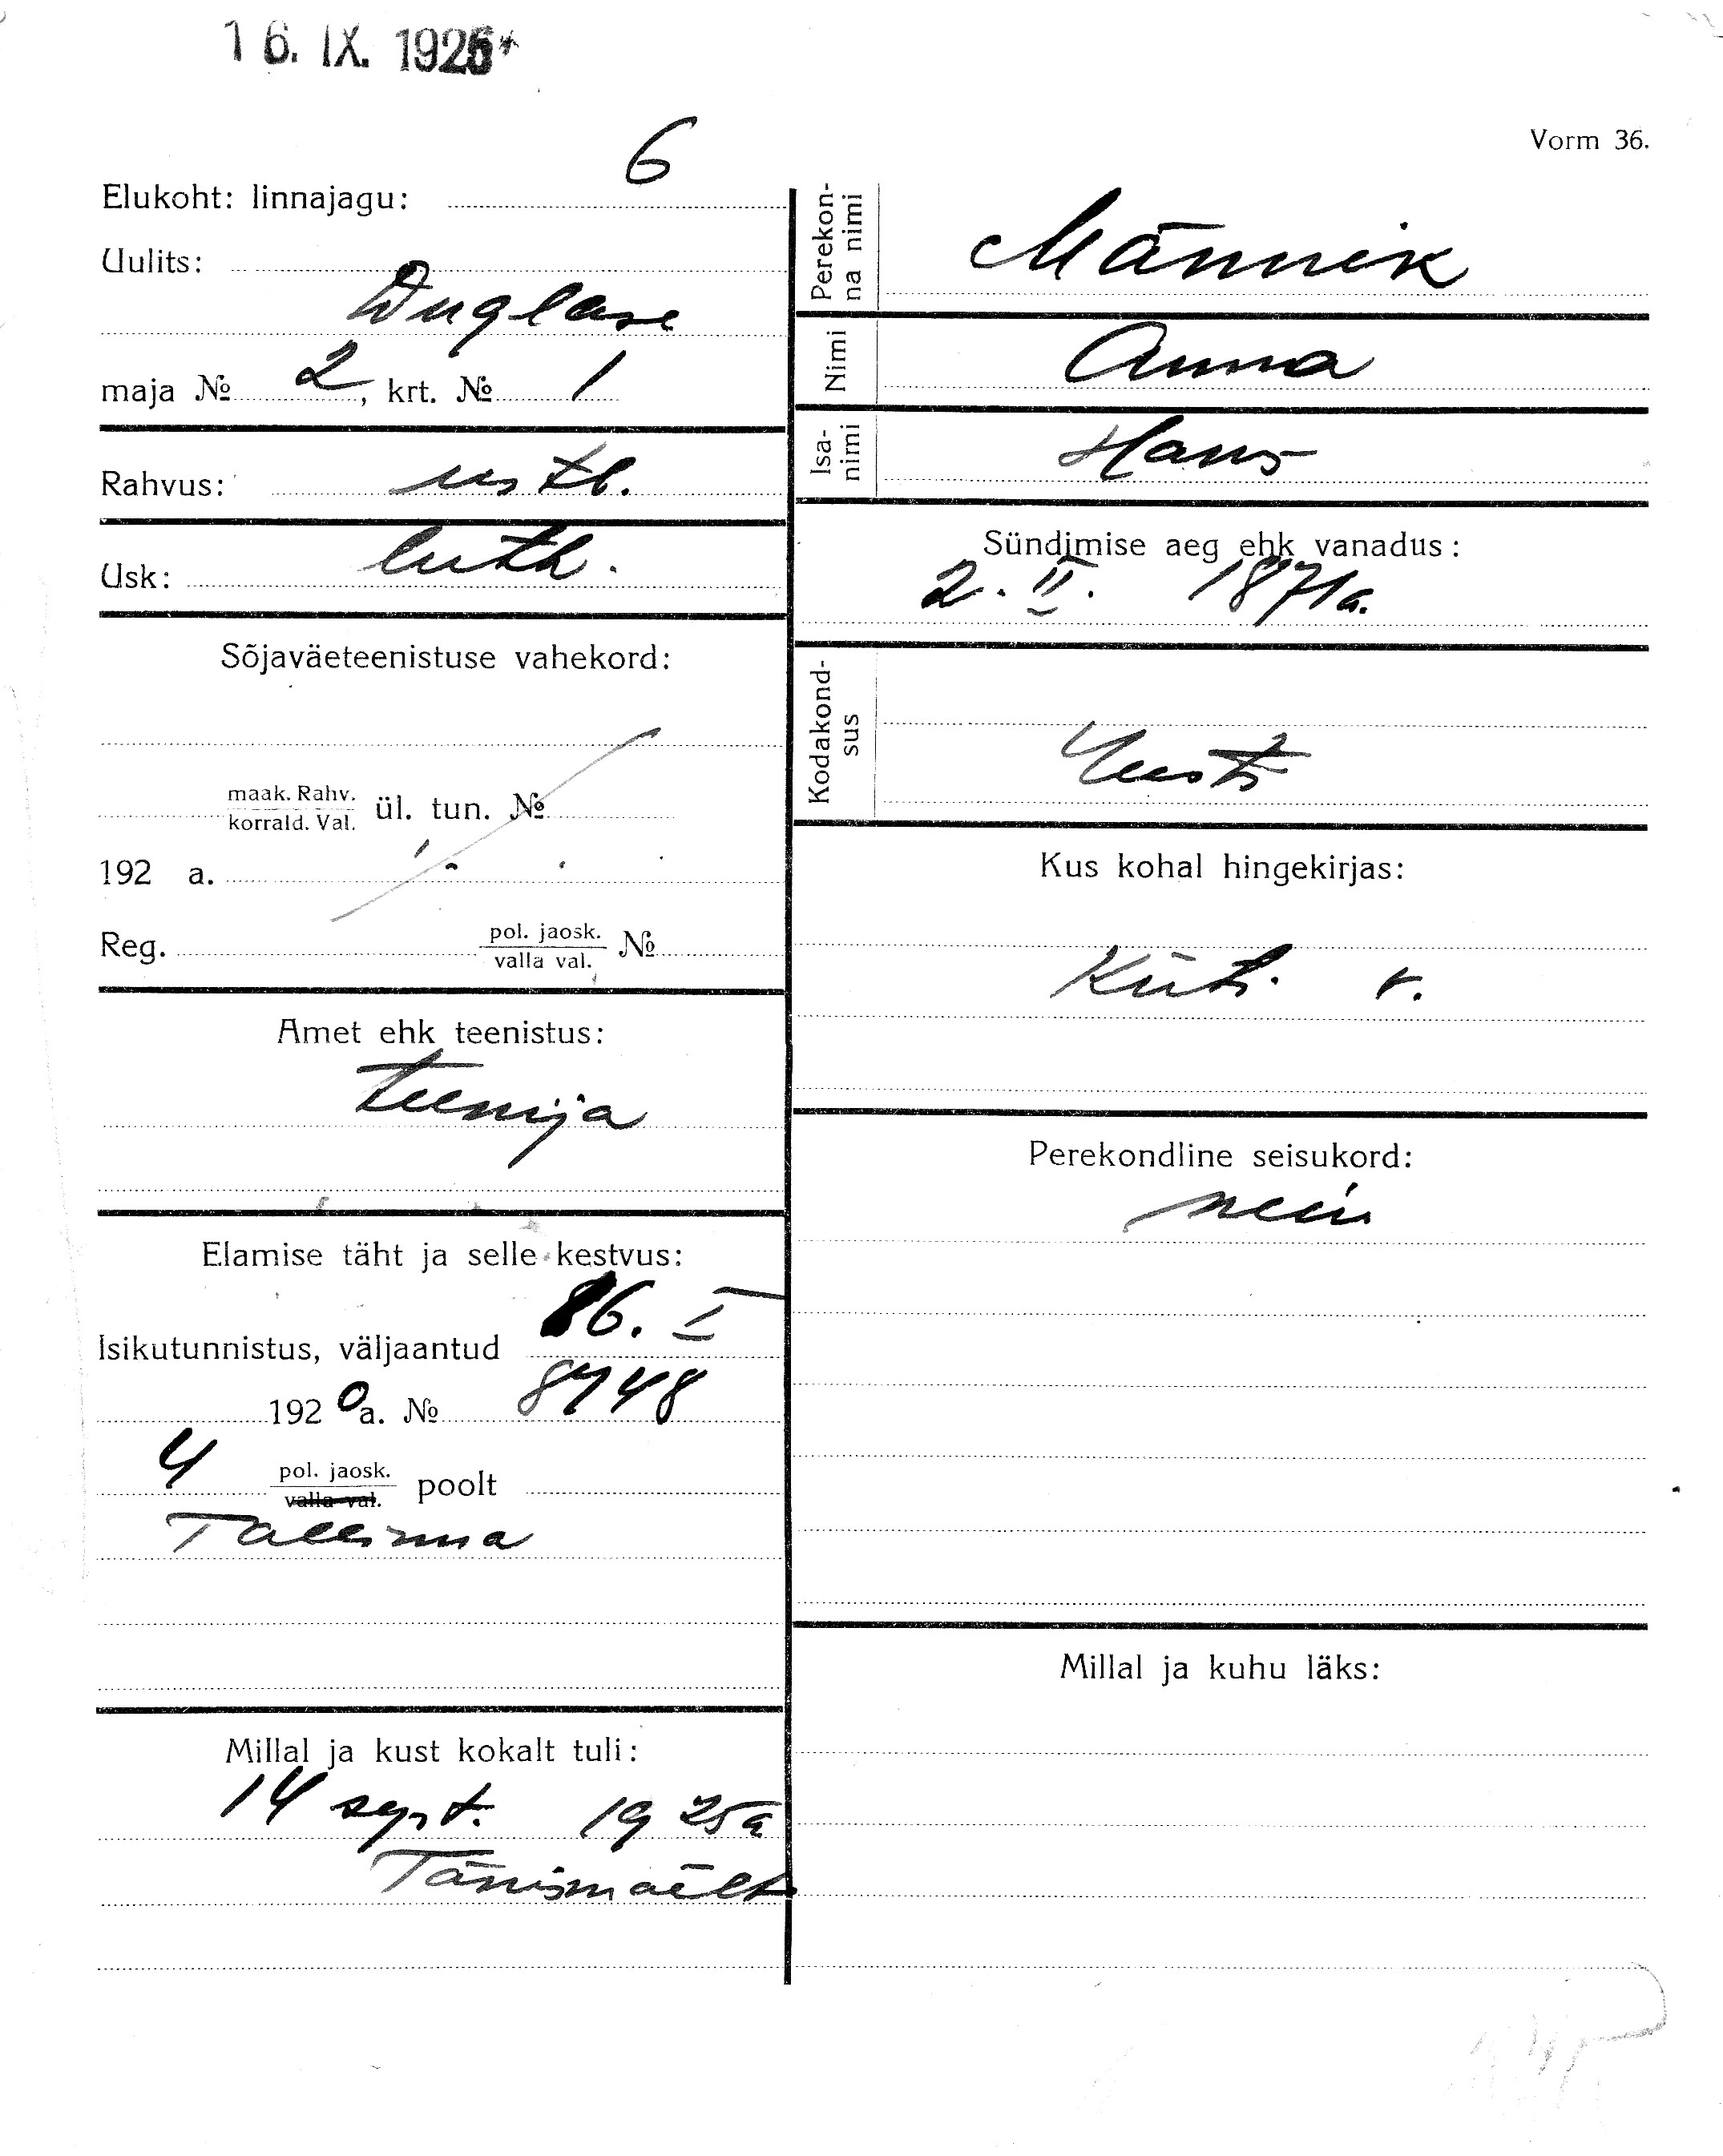 16. IX. 1925*
Vorm 36.
6
Elukoht: linnajagu:
Uulits:
Duglase
maja № 2, krt. № 1
Rahvus: eestl.
Usk: luth.
Sõjaväeteenistuse vahekord:
maak. Rahv.
korrald. Val. ül. tun. №
192 a.
Reg. pol. jaosk. №
valla val.
Amet ehk teenistus:
teenija
Elamise täht ja selle kestvus:
Isikutunnistus, väljaantud 86. I
1920 a. № 8748
4 pol. jaosk. poolt
valla val.
Tallinna
Millal ja kust kokalt tuli:
14 sept. 1925 a
Tõnismäelt
Perekon-
na nimi
Männik
Nimi Anna
Isa-
nimi
Hans
Sündimise aeg ehk vanadus:
2. II. 1871 a.
Kodakond-
sus
Eesti
Kus kohal hingekirjas:
Küti v.
Perekondline seisukord:
neiu
Millal ja kuhu läks: